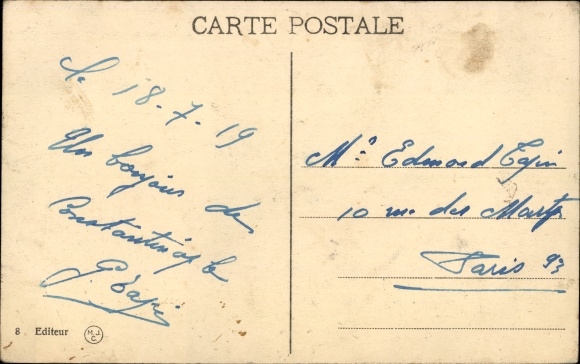 CARTE POSTALE
le 18-7-19
Un bonjour de
Constantinople
Mr Edmond
10 rue des
Paris 93
8 Editeur M.J.C.